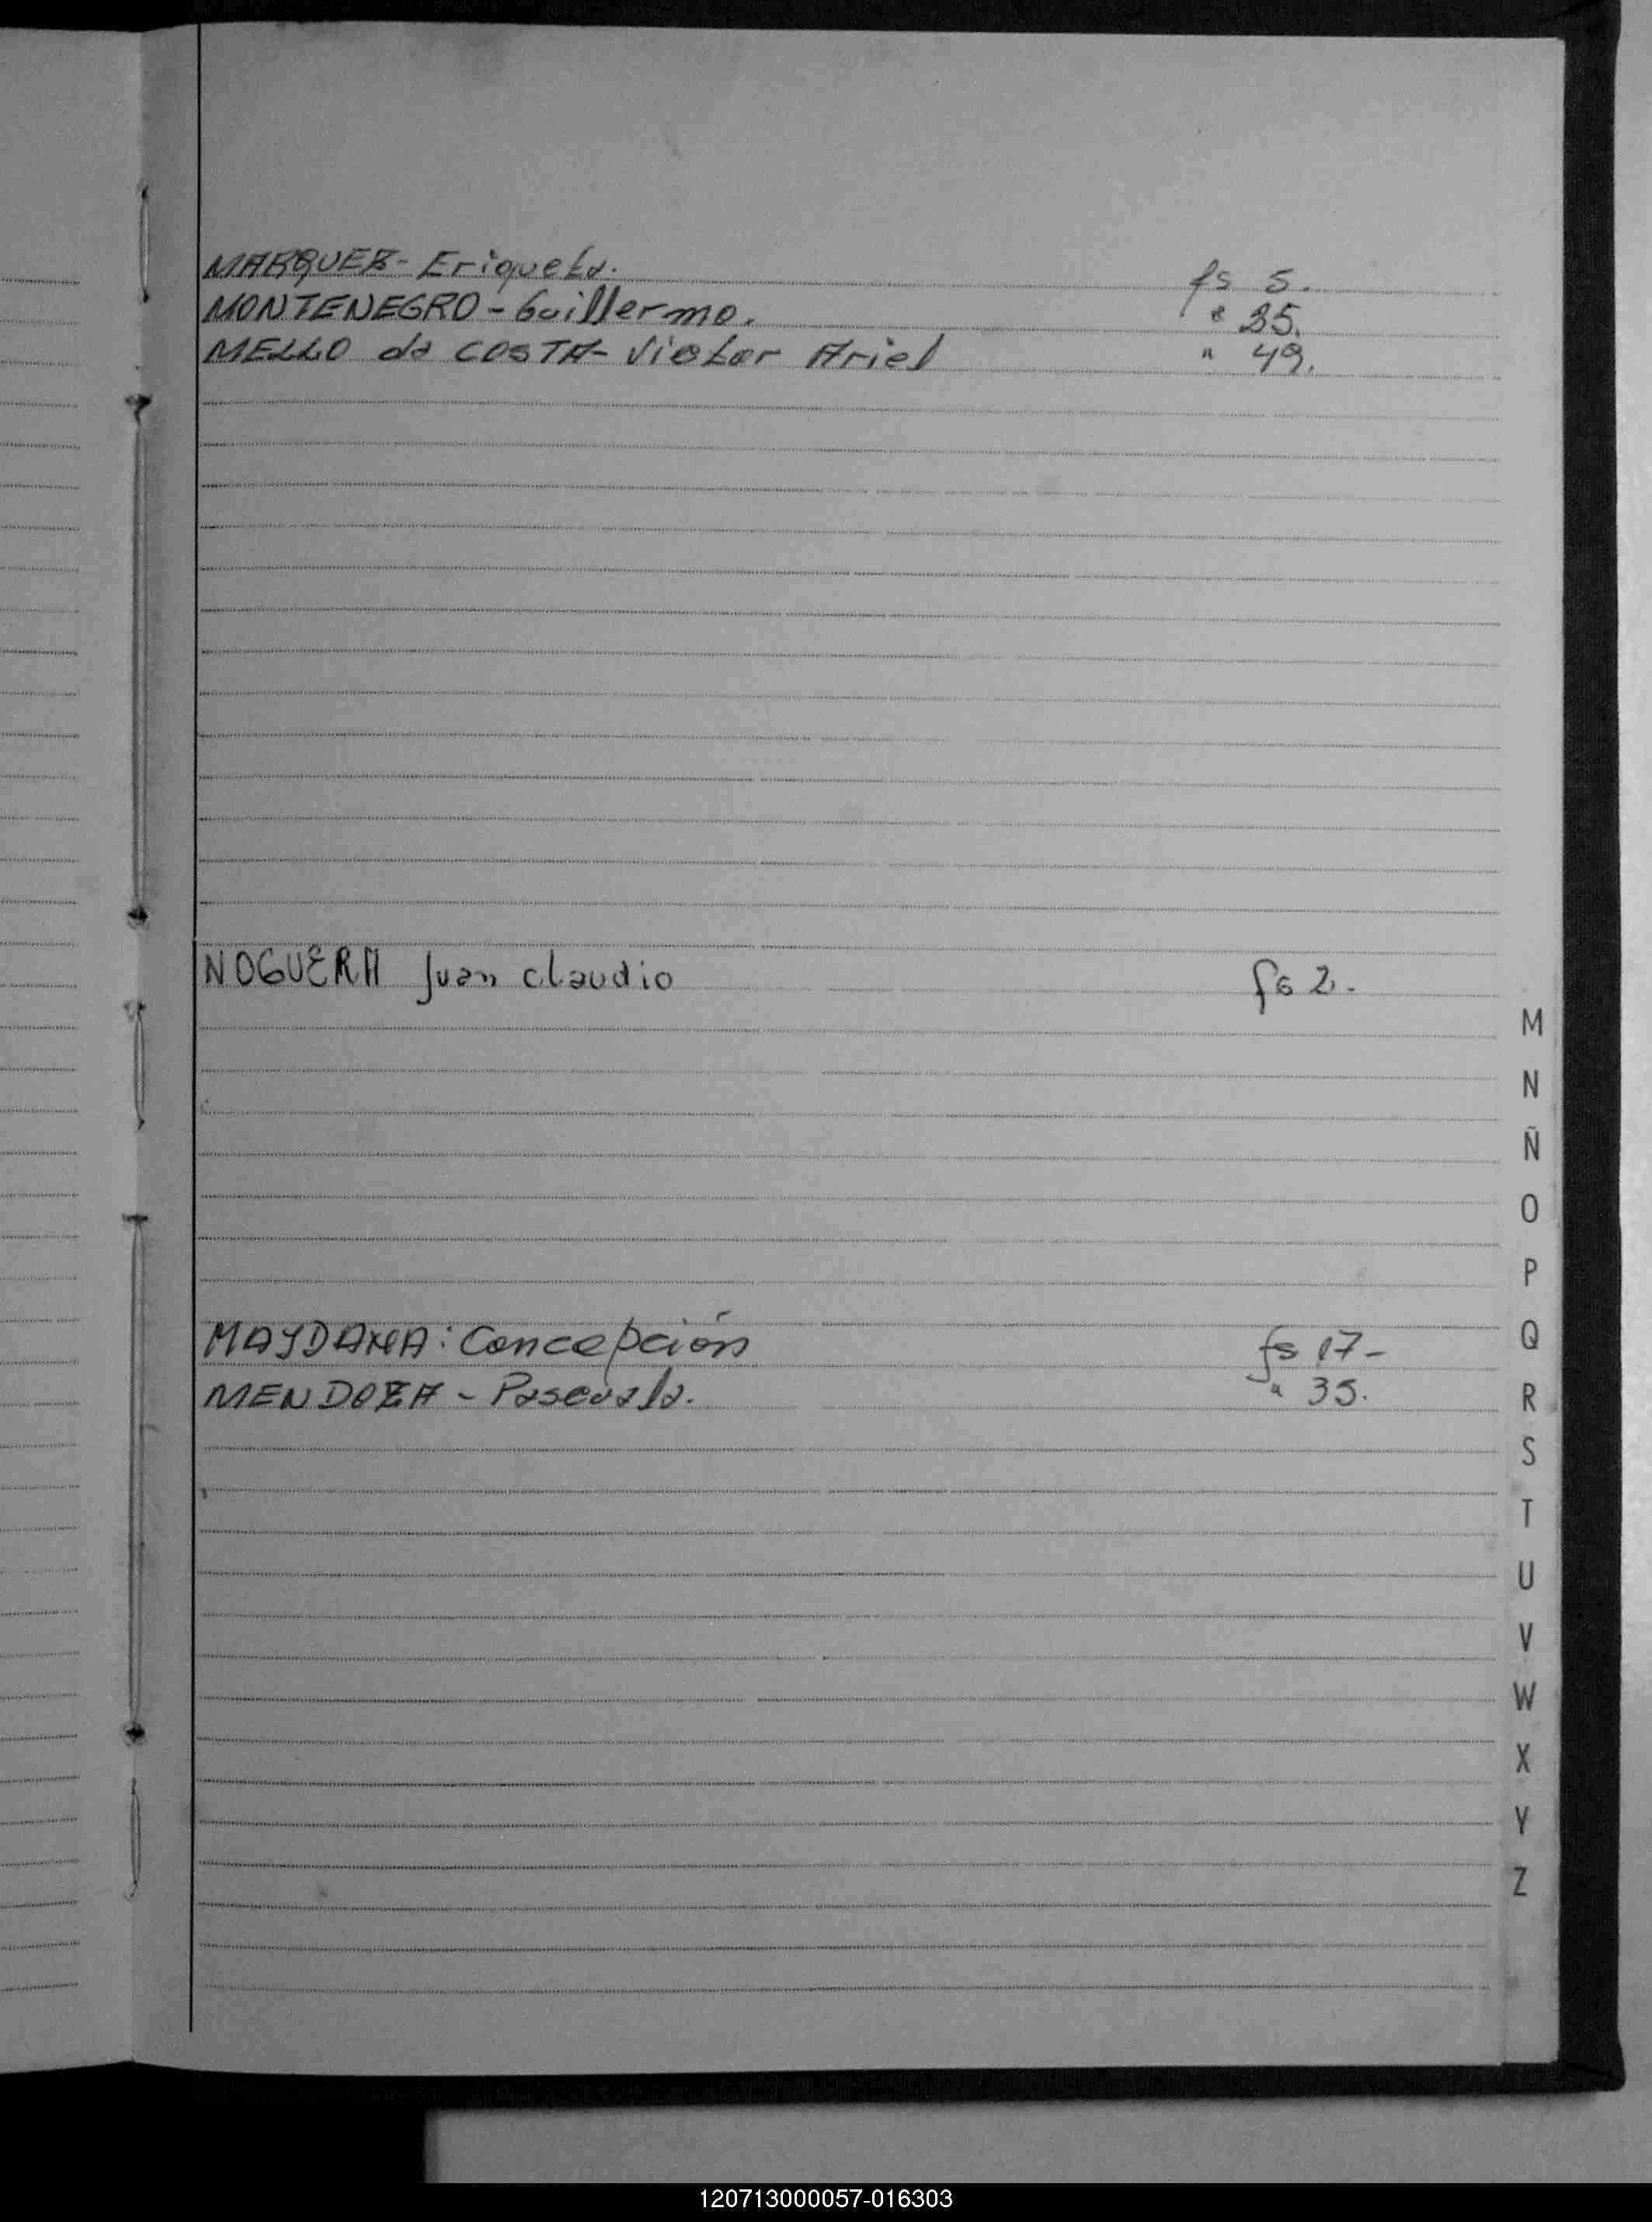 MARQUEZ - Eriqueta. fs 5.
MONTENEGRO - Guillermo. " 35.
MELLO da COSTA - Victor Ariel " 49.
NOGUERA Juan claudio fs 2.
MAYDANA: Concepción fs 17-
MENDOZA - Pascuala. " 35.
M
N
Ñ
O
P
Q
R
S
T
U
V
W
X
Y
Z
120713000057-016303